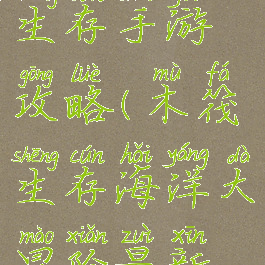 生存手游
gōng lüè mù fá
攻略(木筏
shēng cún hǎi yáng dà
生存海洋大
mào xiǎn zuì xīn
冒险最新